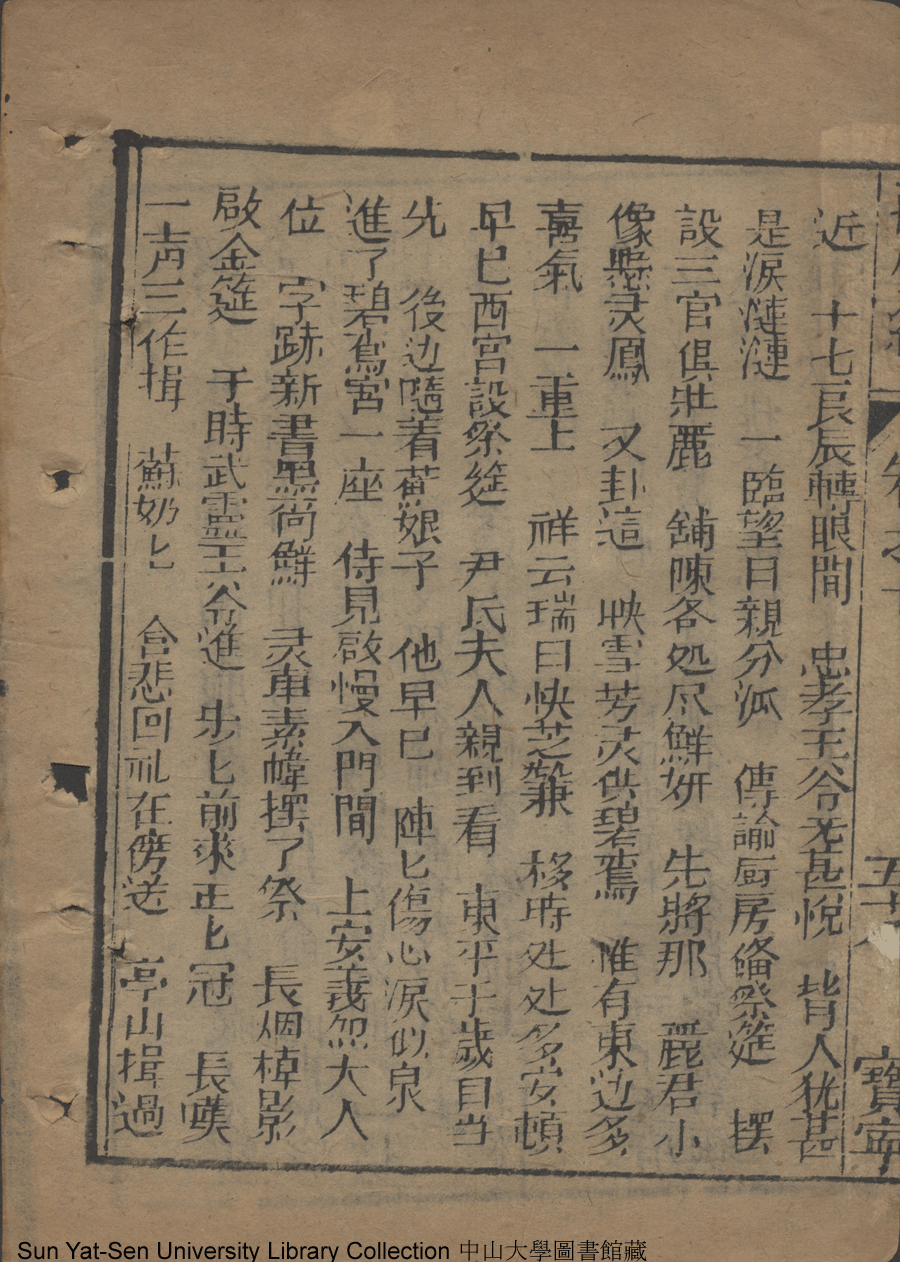 五十八 寶寧
近 十七良辰轉眼間 忠孝王爺尤甚悅 皆人犹甚
是淚漣漣 一臨望日親分派 傳諭厨房俻祭筵 摆
設三官俱壯麗 舖陳各処尽鮮妍 先將那 麗君小
像懸灵鳳 又卦這 映雪芳灵供碧鸞 惟有東边多
喜氣 一重上 祥云瑞日快芝蘭 移時处处多安頓
早巳西宮設祭筵 尹氏夫人親到看 東平千歲自当
先 後边隨着蘇娘子 他早巳 陣匕傷心淚似泉
進了碧鸞宮一座 侍見啟慢入門間 上安義烈大人
位 字跡新書墨尚鮮 灵車素幃摆了祭 長烟棹影
啟金筵 于時武靈王爺進 步匕前來正匕冠 長嘆
一声三作揖 蘇奶匕 含悲回礼在傍送 亭山揖過
Sun Yat-Sen University Library Collection 中山大學圖書館藏